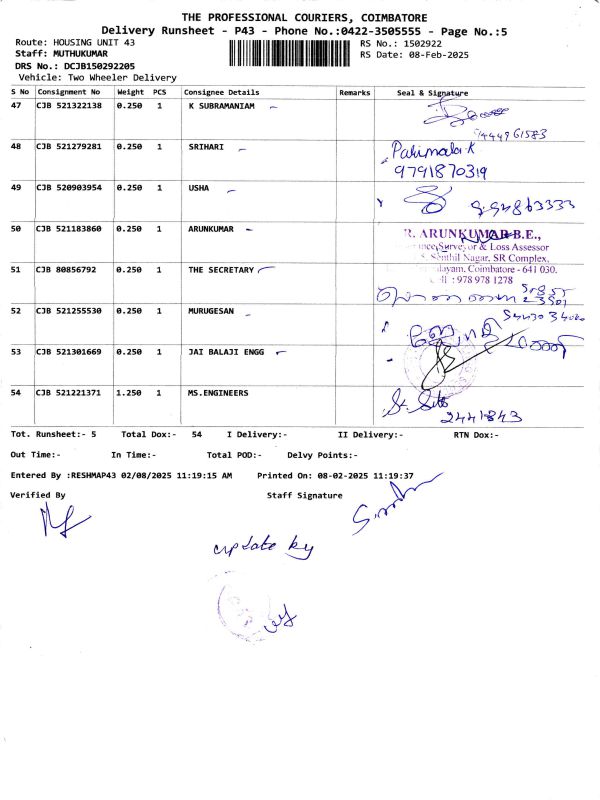 THE PROFESSIONAL COURIERS, COIMBATORE
Delivery Runsheet - P43 - Phone No.:0422-3505555 - Page No.:5
Route: HOUSING UNIT 43
RS No.: 1502922
Staff: MUTHUKUMAR
RS Date: 08-Feb-2025
DRS No.: DCJB150292205
Vehicle: Two Wheeler Delivery
S No Consignment No Weight PCS Consignee Details Remarks Seal & Signature
47 CJB 521322138 0.250 1 K SUBRAMANIAM
9444961583
48 CJB 521279281 0.250 1 SRIHARI
Parimala.K
9791870319
49 CJB 520903954 0.250 1 USHA
50 CJB 521183860 0.250 1 ARUNKUMAR
R. ARUNKUMAR B.E.,
Surveyor & Loss Assessor
Senthil Nagar, SR Complex,
Coimbatore - 641 030.
: 978 978 1278
51 CJB 80856792 0.250 1 THE SECRETARY
52 CJB 521255530 0.250 1 MURUGESAN
53 CJB 521301669 0.250 1 JAI BALAJI ENGG
54 CJB 521221371 1.250 1 MS.ENGINEERS
2441843
Tot. Runsheet:- 5 Total Dox:- 54 I Delivery:- II Delivery:- RTN Dox:-
Out Time:- In Time:- Total POD:- Delvy Points:-
Entered By :RESHMAP43 02/08/2025 11:19:15 AM Printed On: 08-02-2025 11:19:37
Verified By Staff Signature
update by